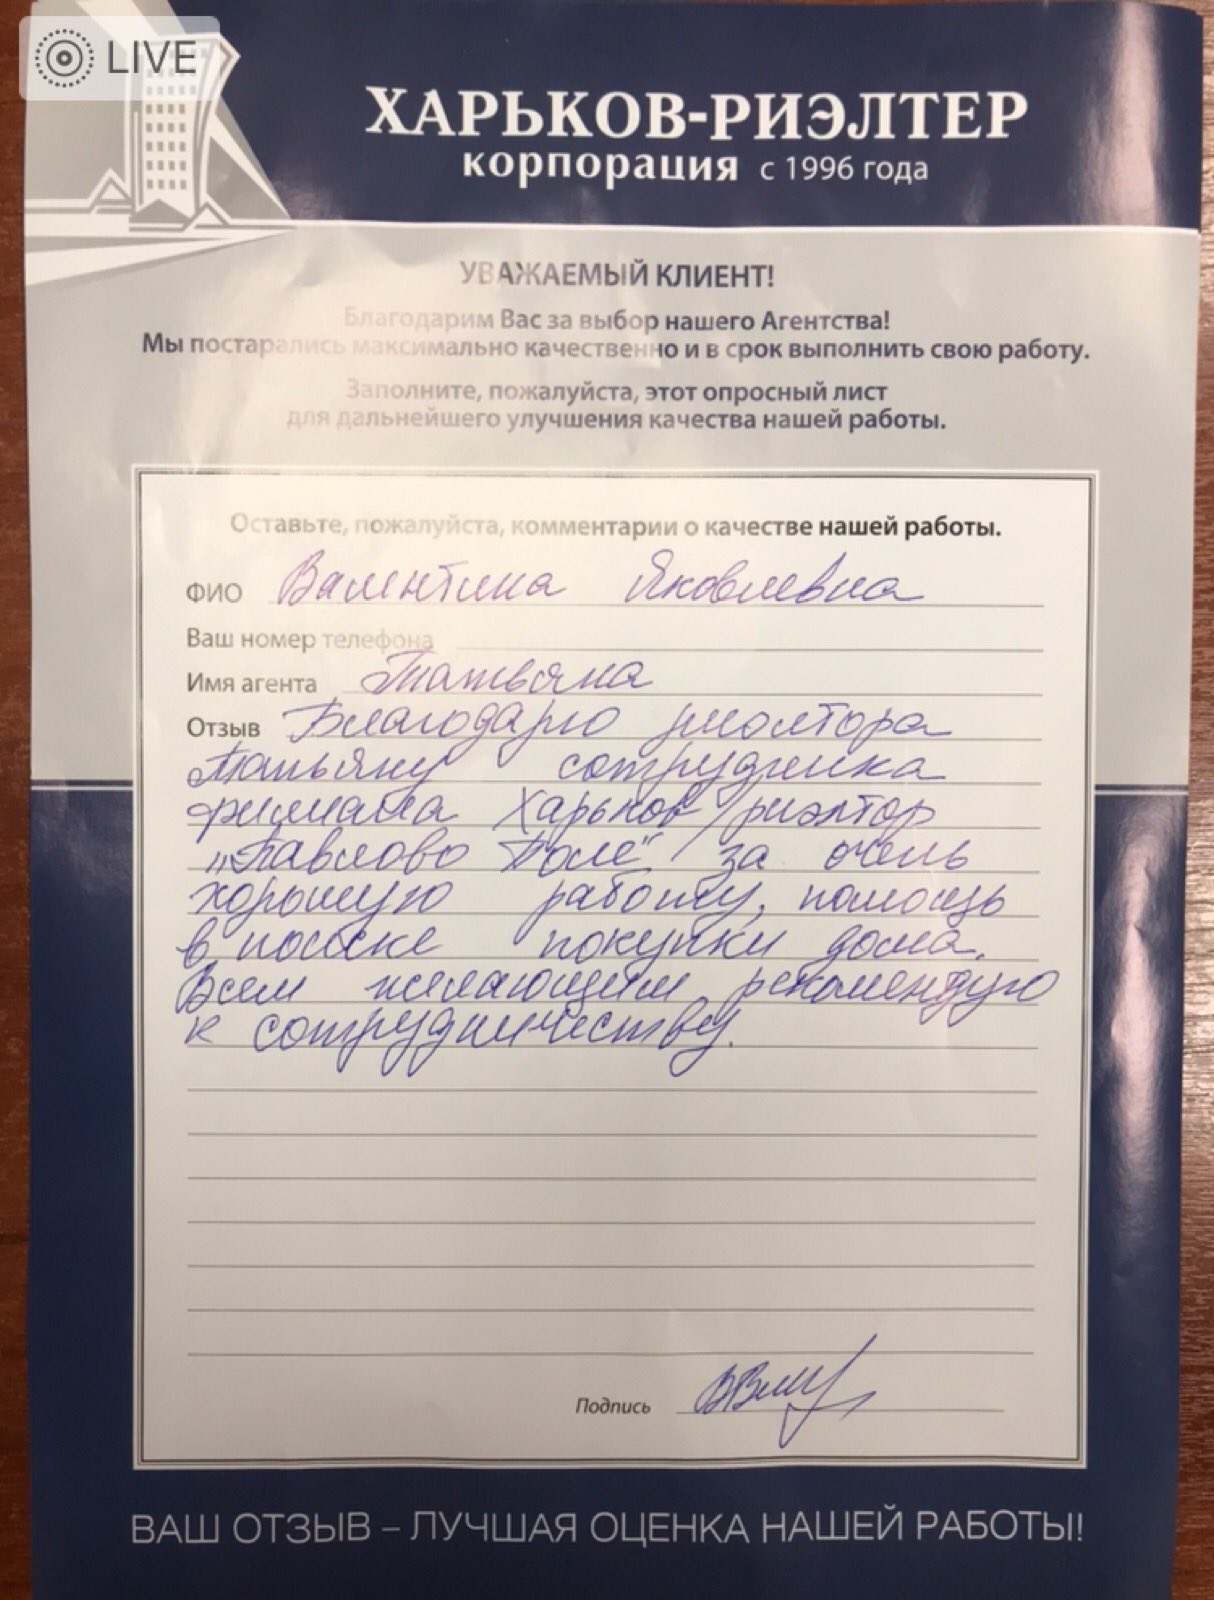 LIVE
ХАРЬКОВ-РИЭЛТЕР
корпорация с 1996 года
УВАЖАЕМЫЙ КЛИЕНТ!
Благодарим Вас за выбор нашего Агентства!
Мы постарались максимально качественно и в срок выполнить свою работу.
Заполните, пожалуйста, этот опросный лист
для дальнейшего улучшения качества нашей работы.
Оставьте, пожалуйста, комментарии о качестве нашей работы.
ФИО Валентина Яковлевна
Ваш номер телефона
Имя агента Татьяна
Отзыв Благодарю риолтора
Татьяну сотрудника
филиала Харьков риэлтор
„Павлово Поле" за очень
хорошую работу, помощь
в поиске покупки дома.
Всем желающим рекомендую
к сотрудничеству.
Подпись
ВАШ ОТЗЫВ – ЛУЧШАЯ ОЦЕНКА НАШЕЙ РАБОТЫ!